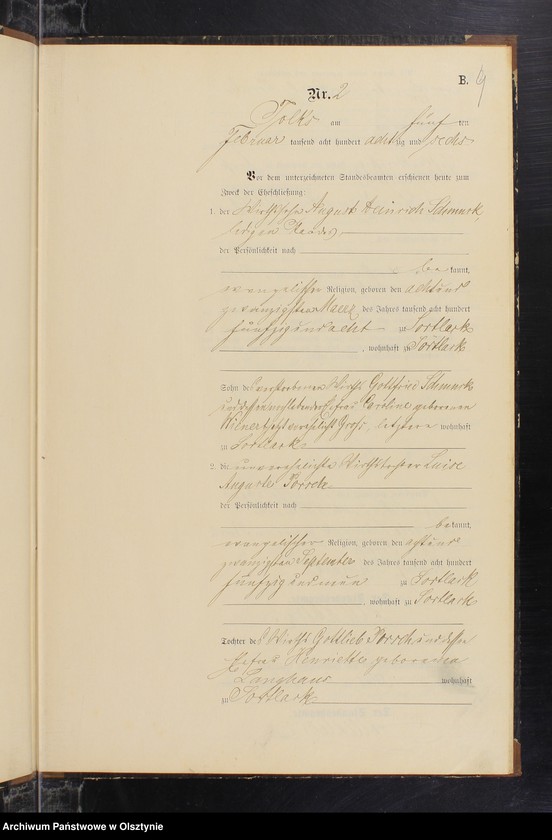 B. 9
Nr. 2
Tolks am fünf ten
Februar tausend acht hundert achtzig und sechs
Vor dem unterzeichneten Standesbeamten erschienen heute zum
Zweck der Eheschließung:
1. der Wirthssohn August Heinrich Schmuck,
ledigen Standes
der Persönlichkeit nach
be kannt,
evangelischer Religion, geboren den acht und
zwanzigsten Maerz des Jahres tausend acht hundert
fünfzig und acht zu Sortlack
, wohnhaft zu Sortlack
Sohn des verstorbenen Wirths Gottfried Schmuck
und dessen Ehefrau Caroline geborenen
jetzt verehelicht Groß, letztere wohnhaft
zu Sortlack
2. die unverehelichte Wirthstochter Luise
Auguste Porsch
der Persönlichkeit nach
be kannt,
evangelischer Religion, geboren den acht und
zwanzigsten September des Jahres tausend acht hundert
fünfzig und neun zu Sortlack
, wohnhaft zu Sortlack
Tochter des Wirths Gottlieb Porsch und dessen
Ehefrau Henriette geborenen
Langhans wohnhaft
zu Sortlack
Archiwum Państwowe w Olsztynie